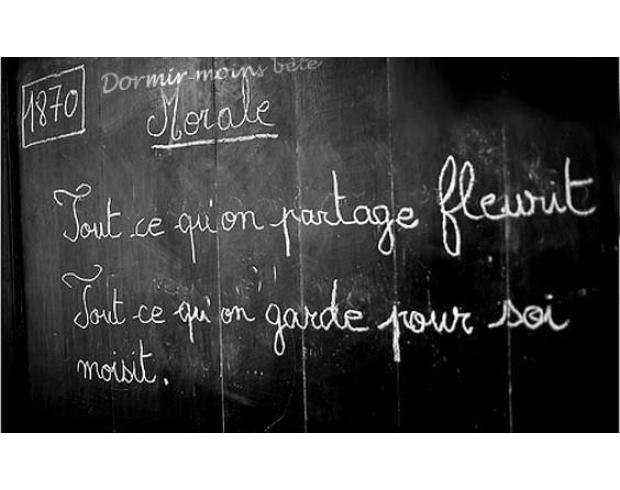 Dormir moins bête
1870
Morale
Tout ce qu'on partage fleurit
Tout ce qu'on garde pour soi
moisit.